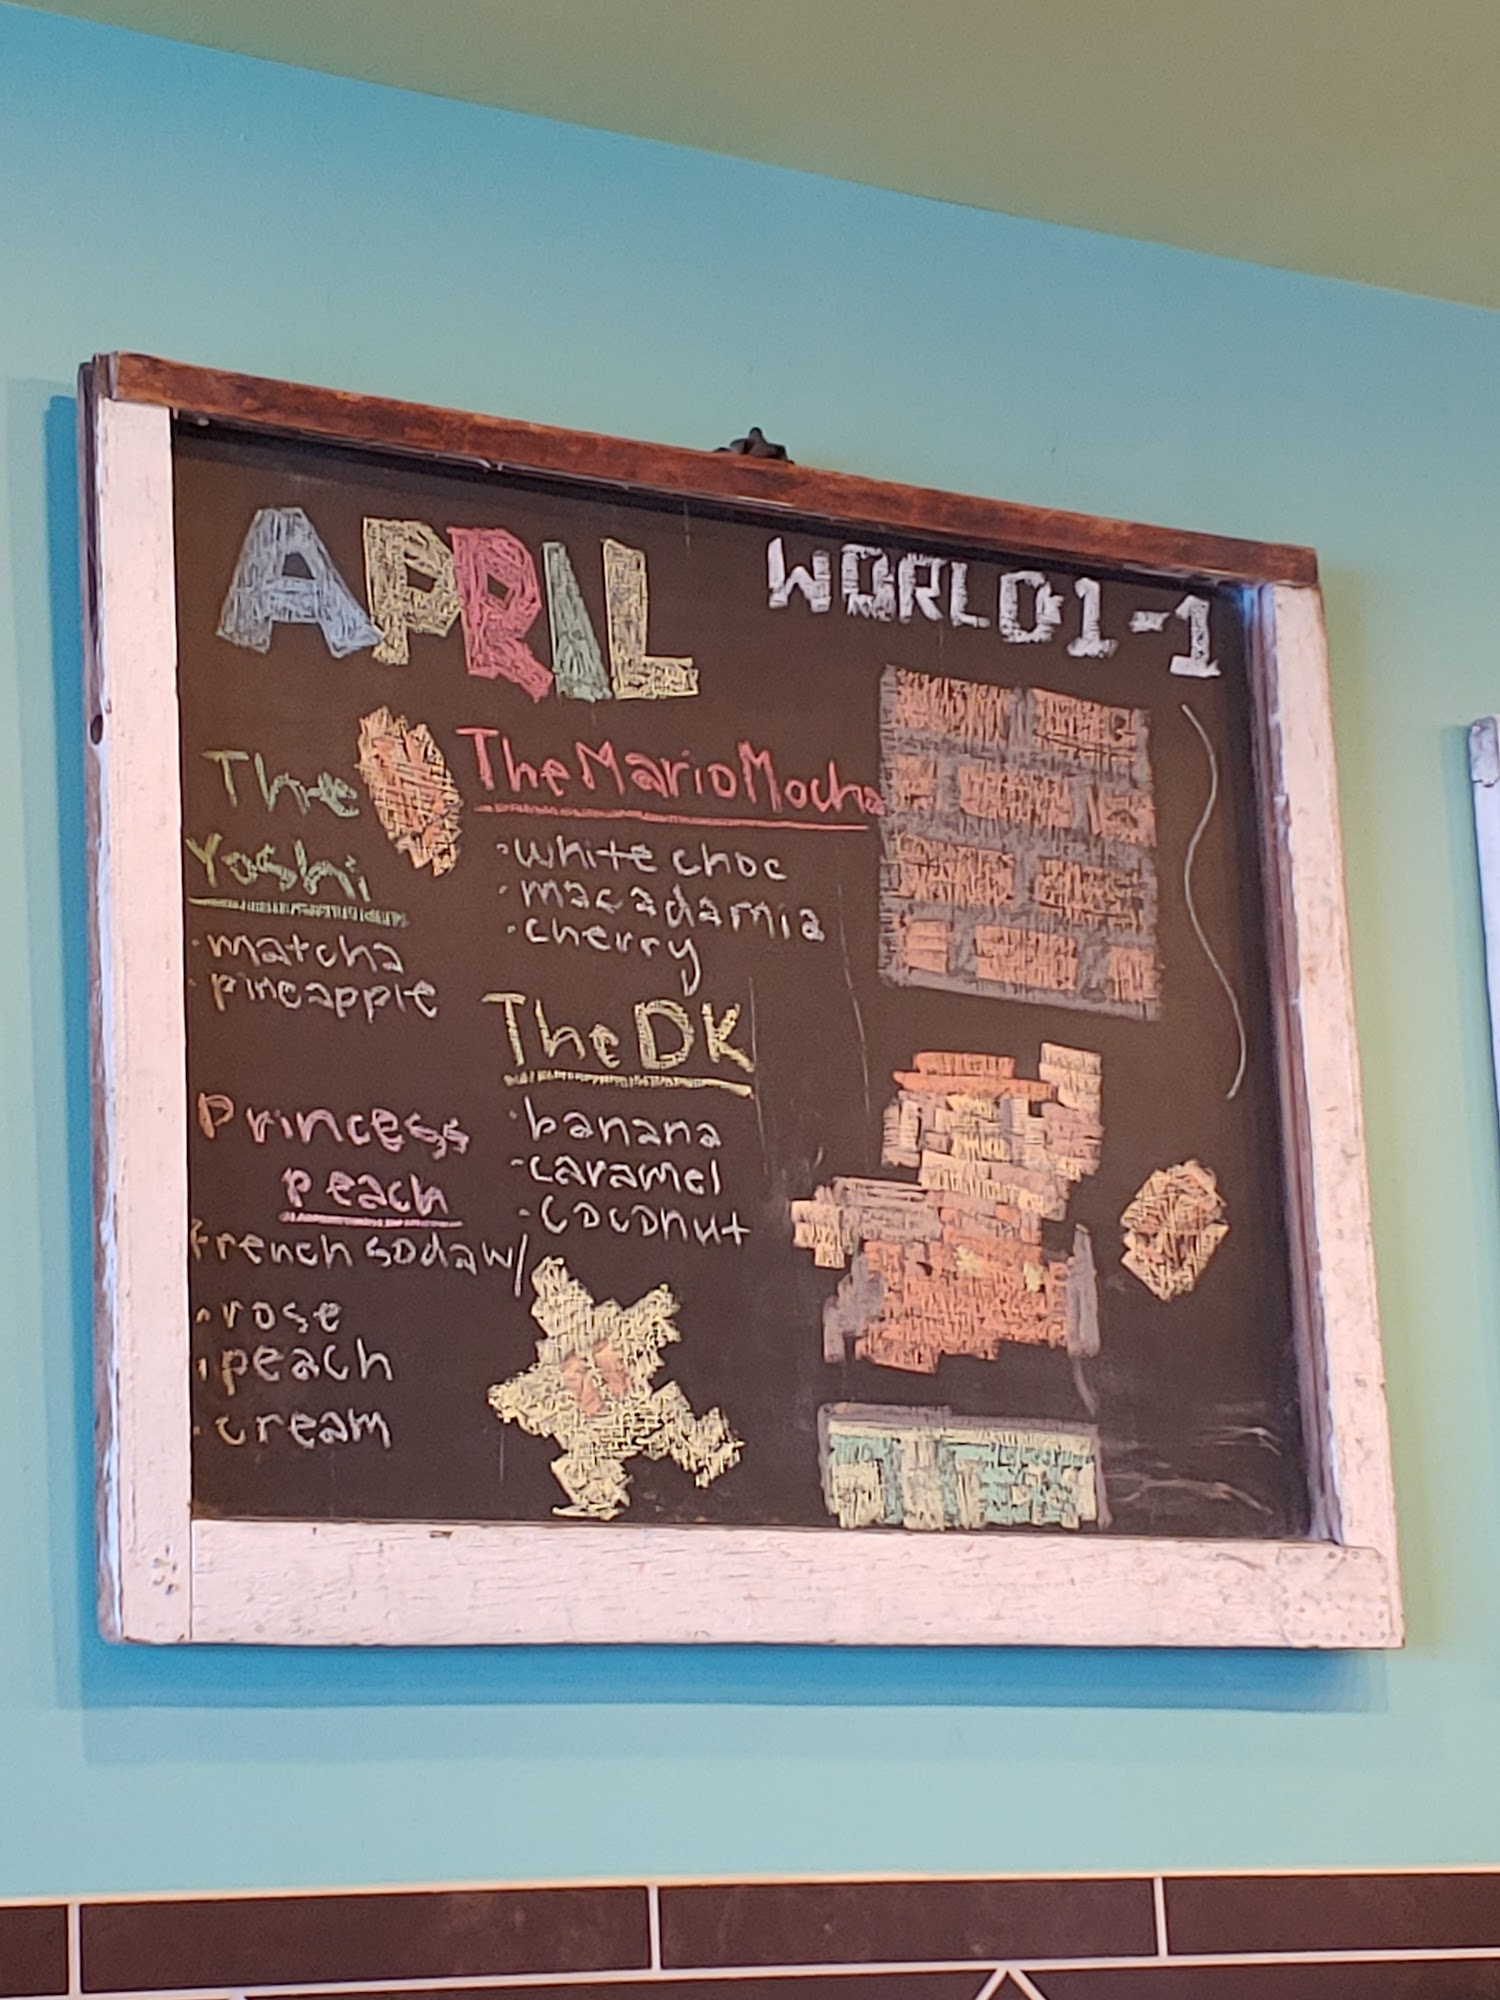 APRIL
WORLD 1-1
The
Yoshi
·matcha
·pineapple
The Mario Mocha
·white choc
·macadamia
·cherry
The DK
·banana
·caramel
·coconut
Princess
peach
french soda w/
·rose
·peach
·cream